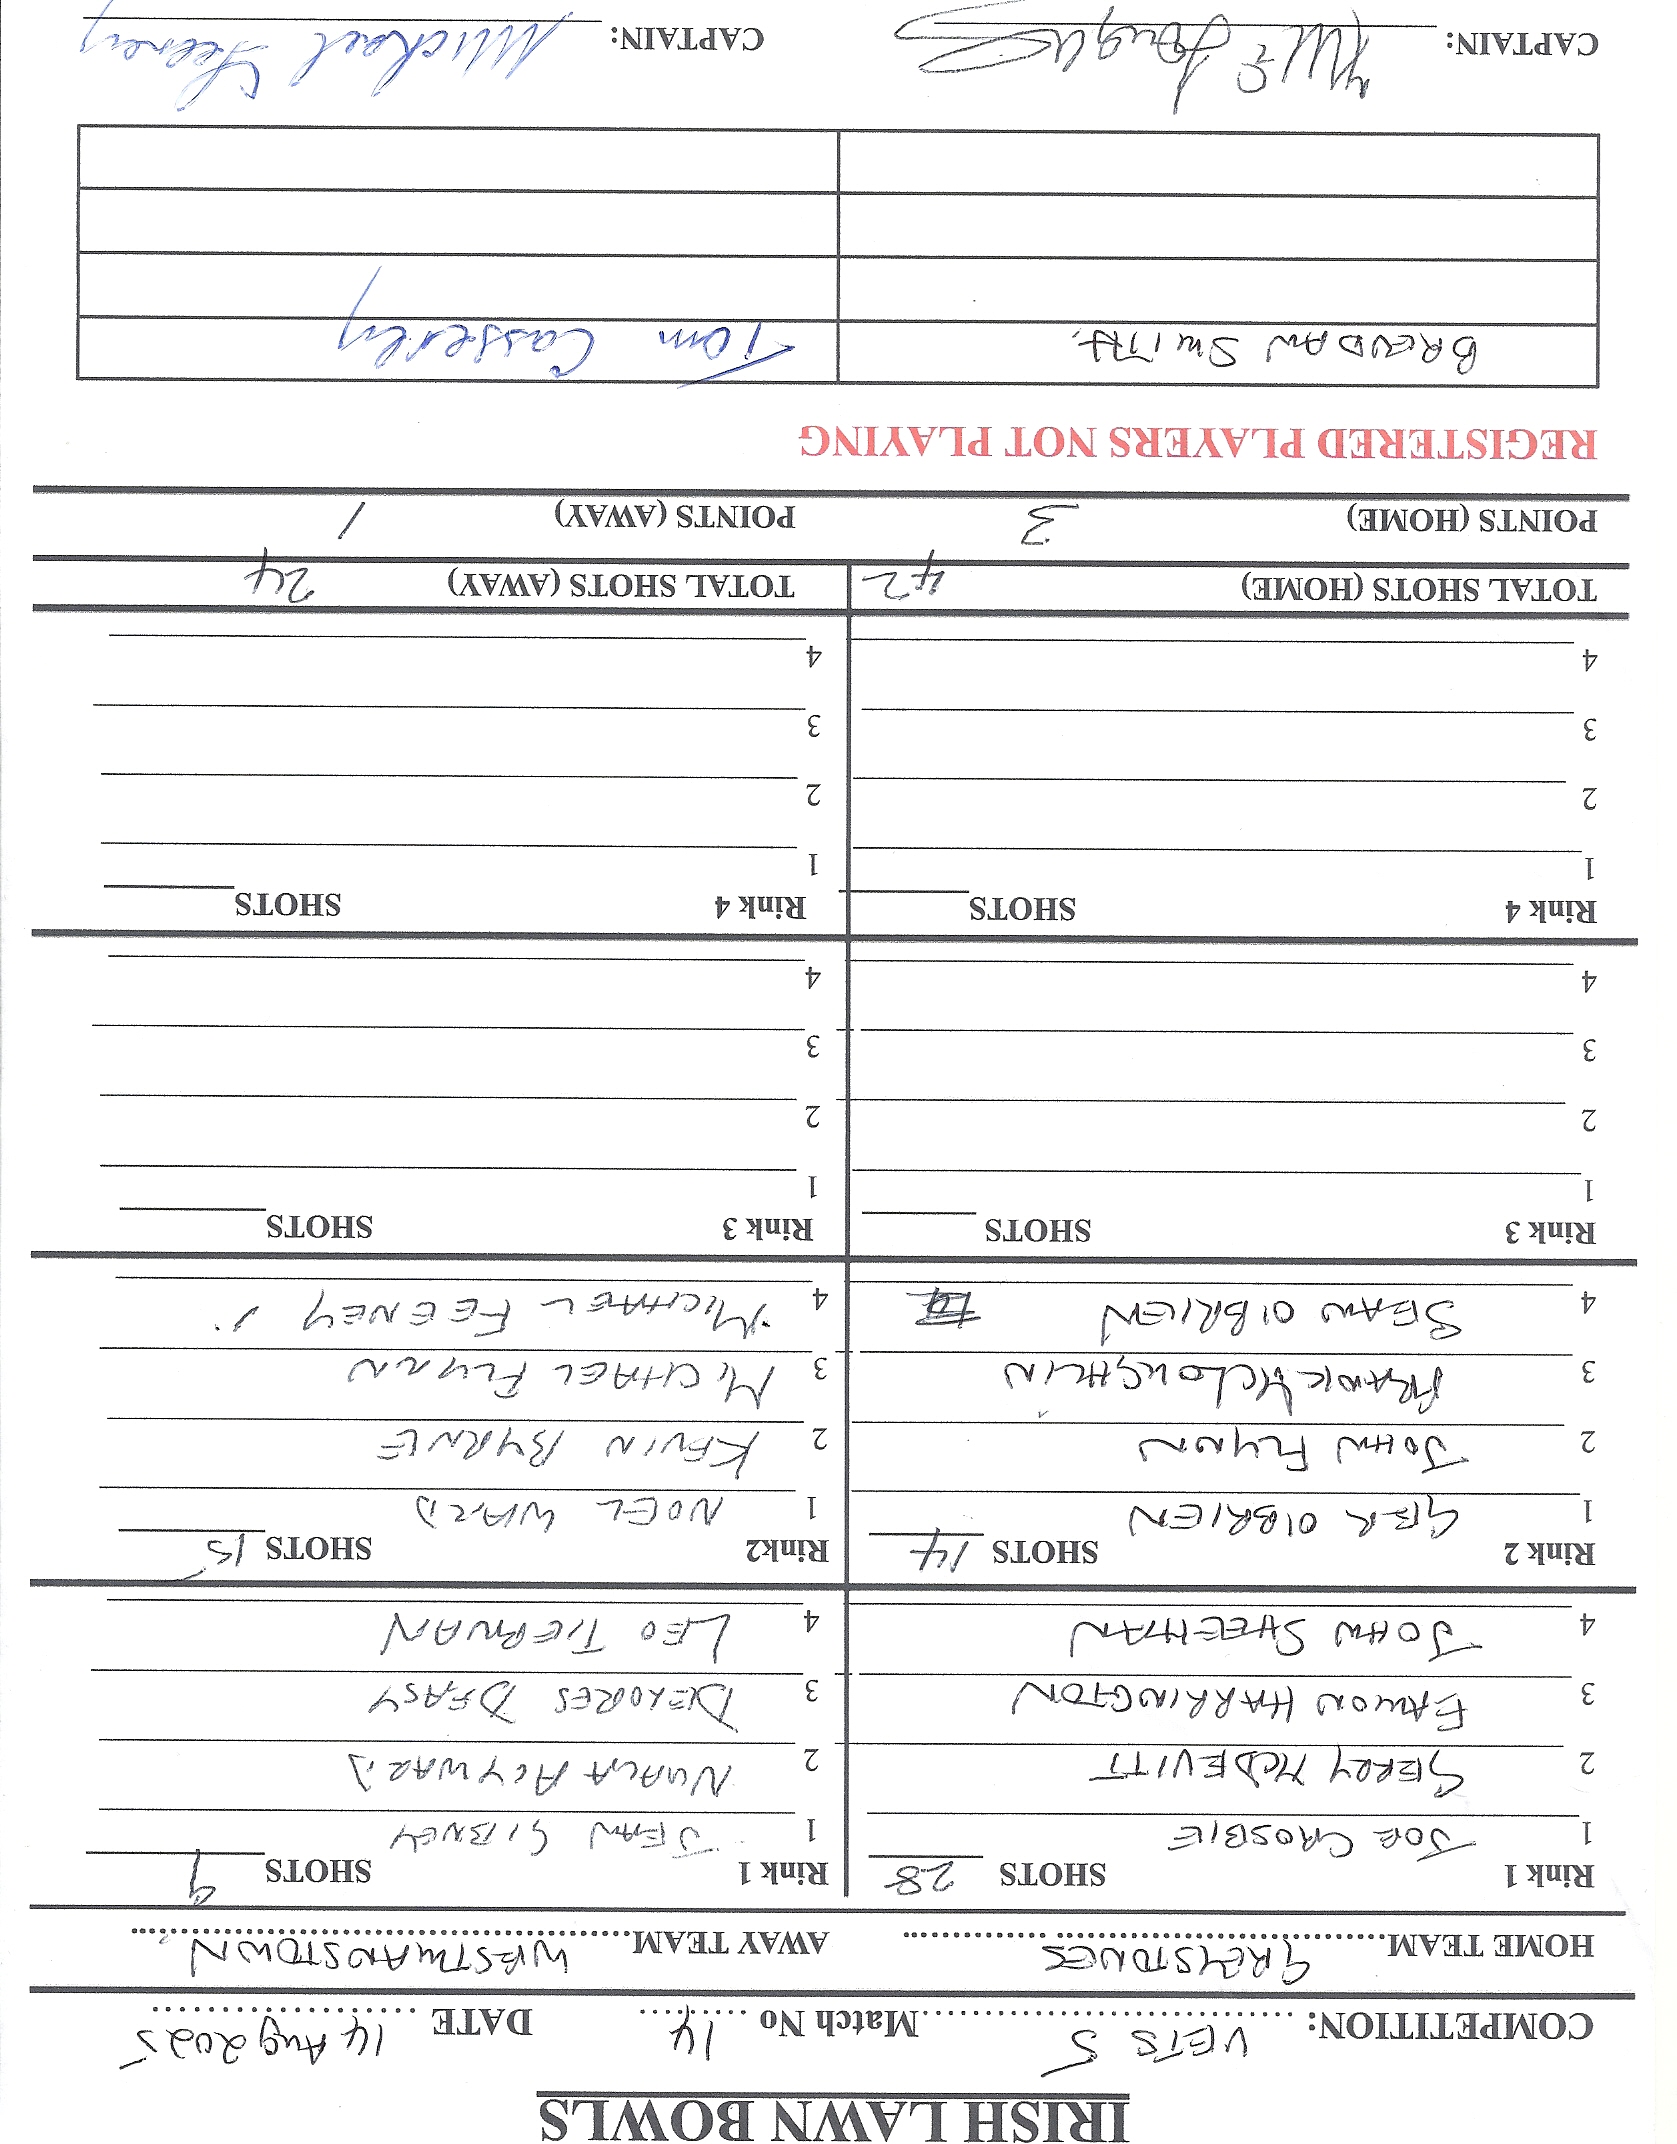 IRISH LAWN BOWLS
COMPETITION: VETS 5 Match No 14 DATE 14 Aug 2025
HOME TEAM GREYSTONES AWAY TEAM WESTMANSTOWN
Rink 1 SHOTS 28 Rink 1 SHOTS 9
1 JOE CROSBIE 1 JEAN GIBNEY
2 GERRY MCDEVITT 2 NUALA AGYWARD
3 EAMON HARRINGTON 3 DELORES DEASY
4 JOHN SHEEHAN 4 LEO TIERNAN
Rink 2 SHOTS 14 Rink2 SHOTS 15
1 GER O'BRIEN 1 NOEL WARD
2 JOHN FLYNN 2 KEVIN BYRNE
3 FRANK MCLOUGHLIN 3 MICHAEL FLYNN
4 SEAN O'BRIEN 4 MICHAEL FEENEY
Rink 3 SHOTS Rink 3 SHOTS
1 1
2 2
3 3
4 4
Rink 4 SHOTS Rink 4 SHOTS
1 1
2 2
3 3
4 4
TOTAL SHOTS (HOME) 42 TOTAL SHOTS (AWAY) 24
POINTS (HOME) 3 POINTS (AWAY) 1
REGISTERED PLAYERS NOT PLAYING
BRENDAN SMITH. Tom Casserley
CAPTAIN: CAPTAIN: Michael Feeney